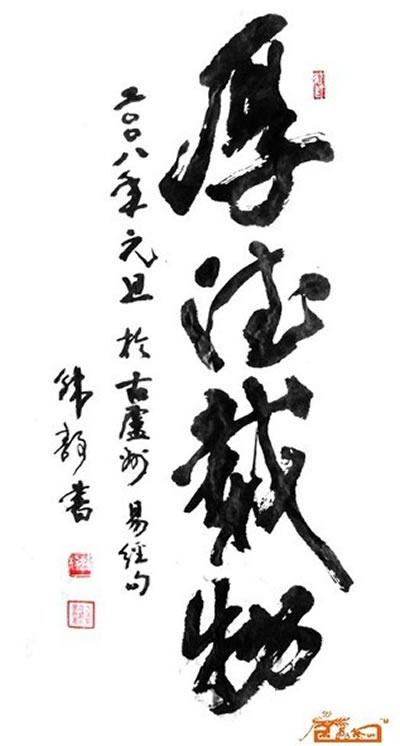 厚德载物
二〇〇八年元旦於古廬州易經句
书